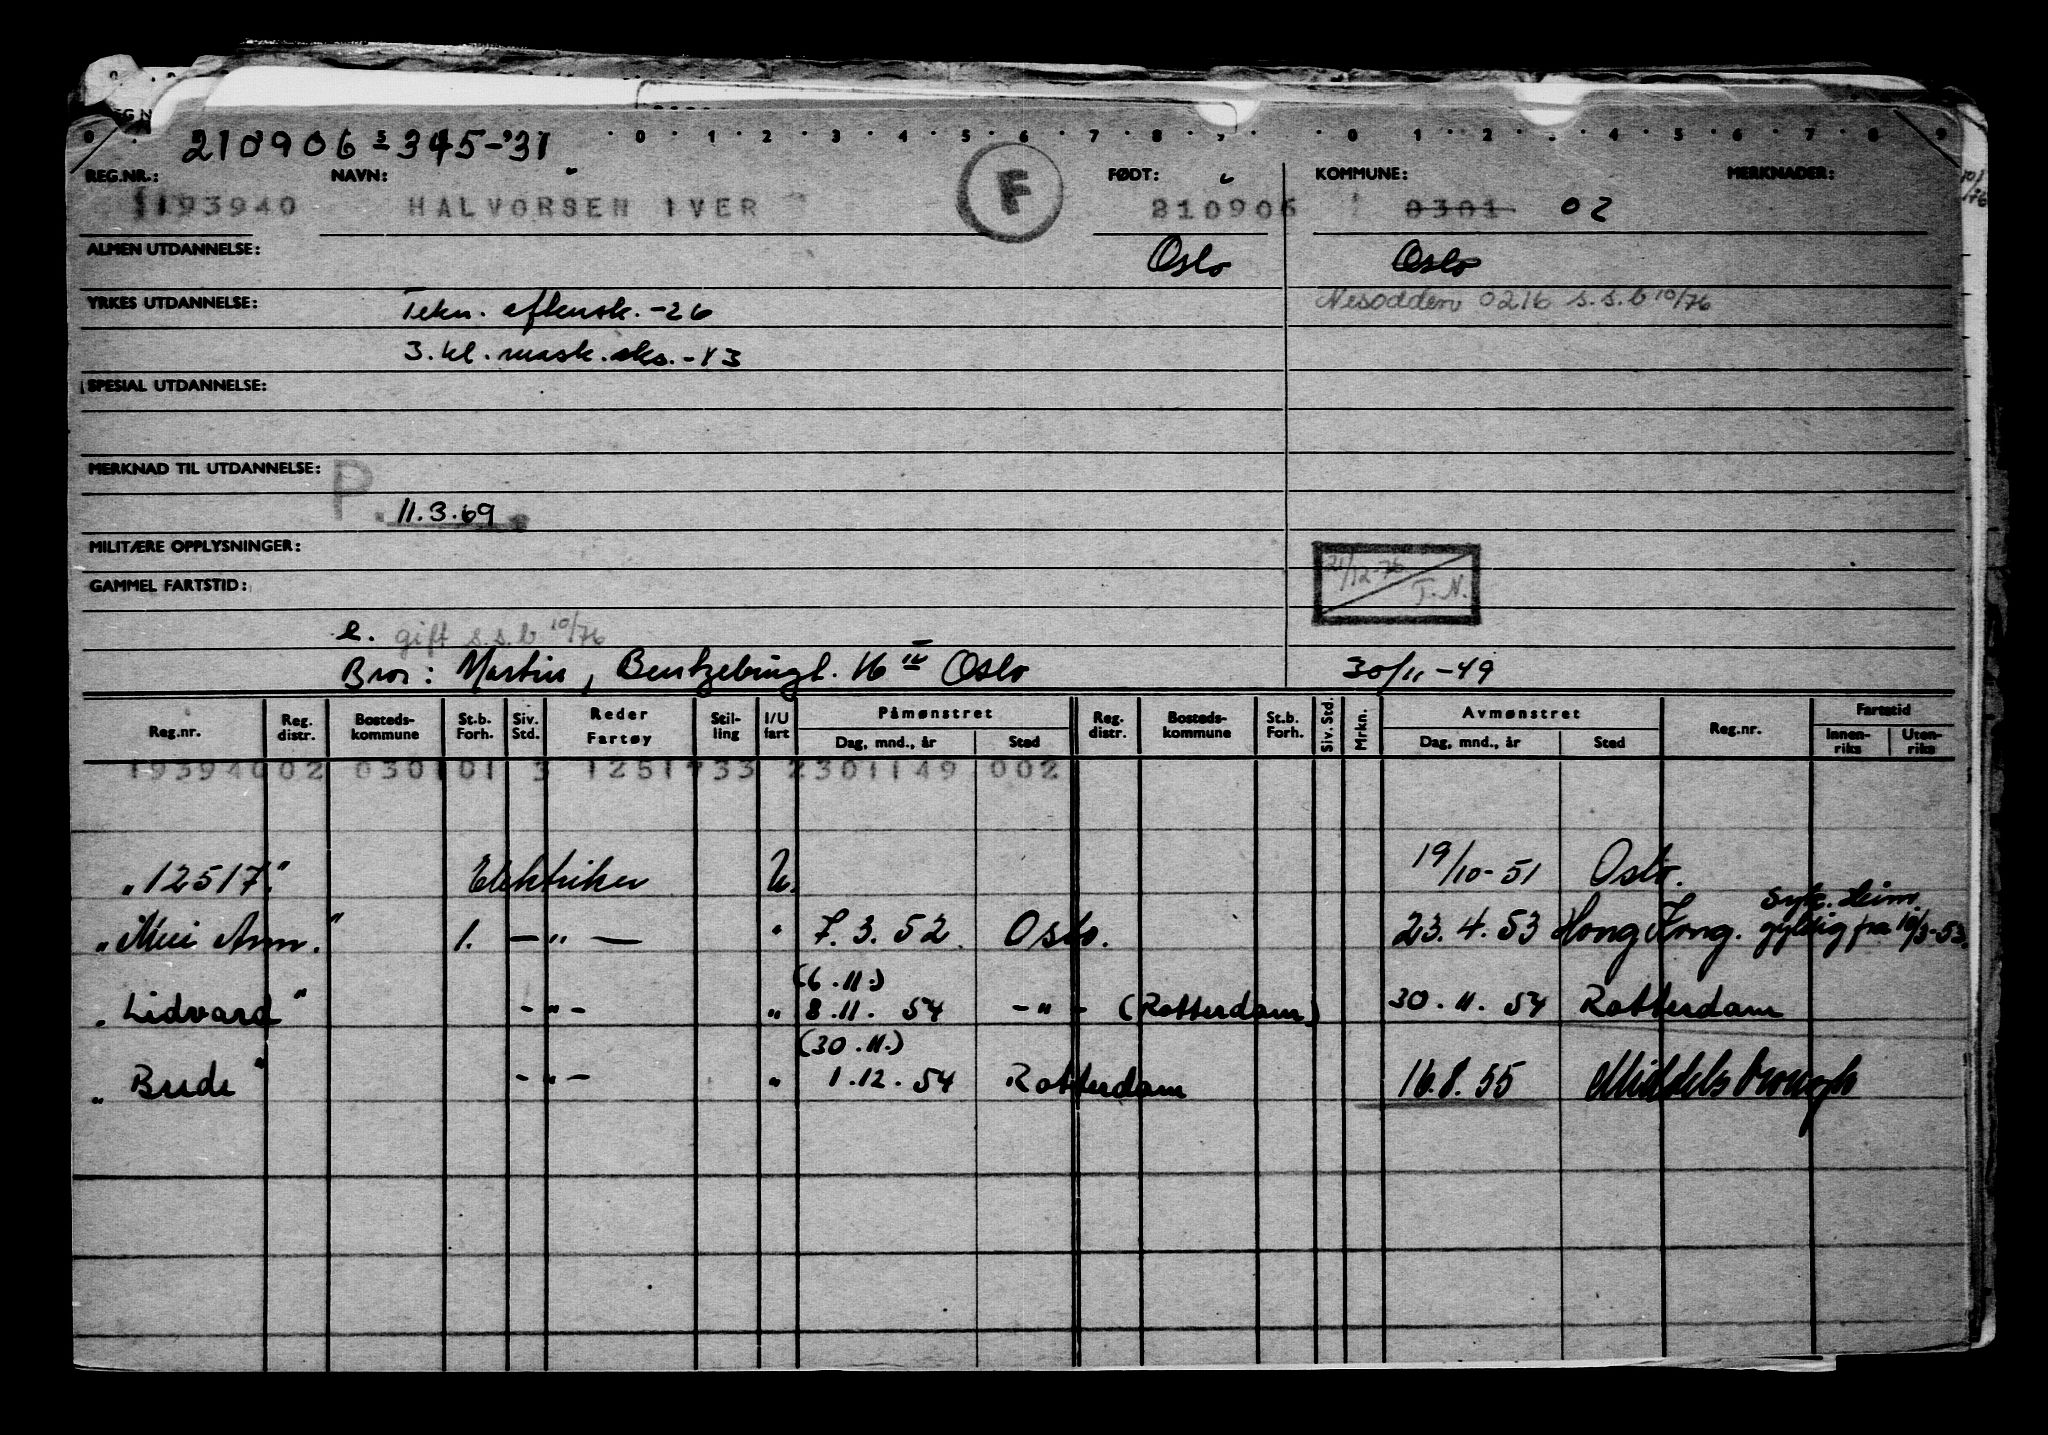 0 1 2 3 4 5 6 7 8 0 1 2 3 4 5 6 7 8 9
210906 345-31
REG.NR.: NAVN: FØDT: KOMMUNE: MERKNADER:
193940 HALVORSEN IVER F 210906 0301 02
ALMEN UTDANNELSE: Oslo Oslo
YRKES UTDANNELSE: Tekn. aftensk. -26 Nesodden 0216 s.s.b 10/76
3. kl. mask. eks. -43
SPESIAL UTDANNELSE:
MERKNAD TIL UTDANNELSE: P.
11.3.69
MILITÆRE OPPLYSNINGER: 21/12-76
GAMMEL FARTSTID: T.N.
e. gift s.s.b 10/76
Bror: Martin, Bentzebrugt. 16 IV Oslo 30/11-49
Reg.nr. Reg. distr. Bosteds-kommune St.b. Forh. Siv. Std. Reder Fartøy Stil-ling I/U fart Påmønstret Dag, mnd., år Sted Reg. distr. Bosteds-kommune St.b. Forh. Siv. Std. Mrkn. Avmønstret Dag, mnd., år Sted Reg.nr. Fartstid Innen-riks Uten-riks
193940 02 0301 01 3 12517 33 2 301149 002
"12517" Elektriker U. 19/10-51 Oslo.
syk. hjem.
"Mui Ann." 1. — " — " 7.3.52. Oslo. 23.4.53 Hong Kong. gyldig fra 10/3-53.
(6.11.)
"Lidvard" - " - " 8.11.54 - " - (Rotterdam) 30.11.54 Rotterdam
(30.11.)
"Brude" - " - " 1.12.54 Rotterdam 16.8.55 Middelsbrough